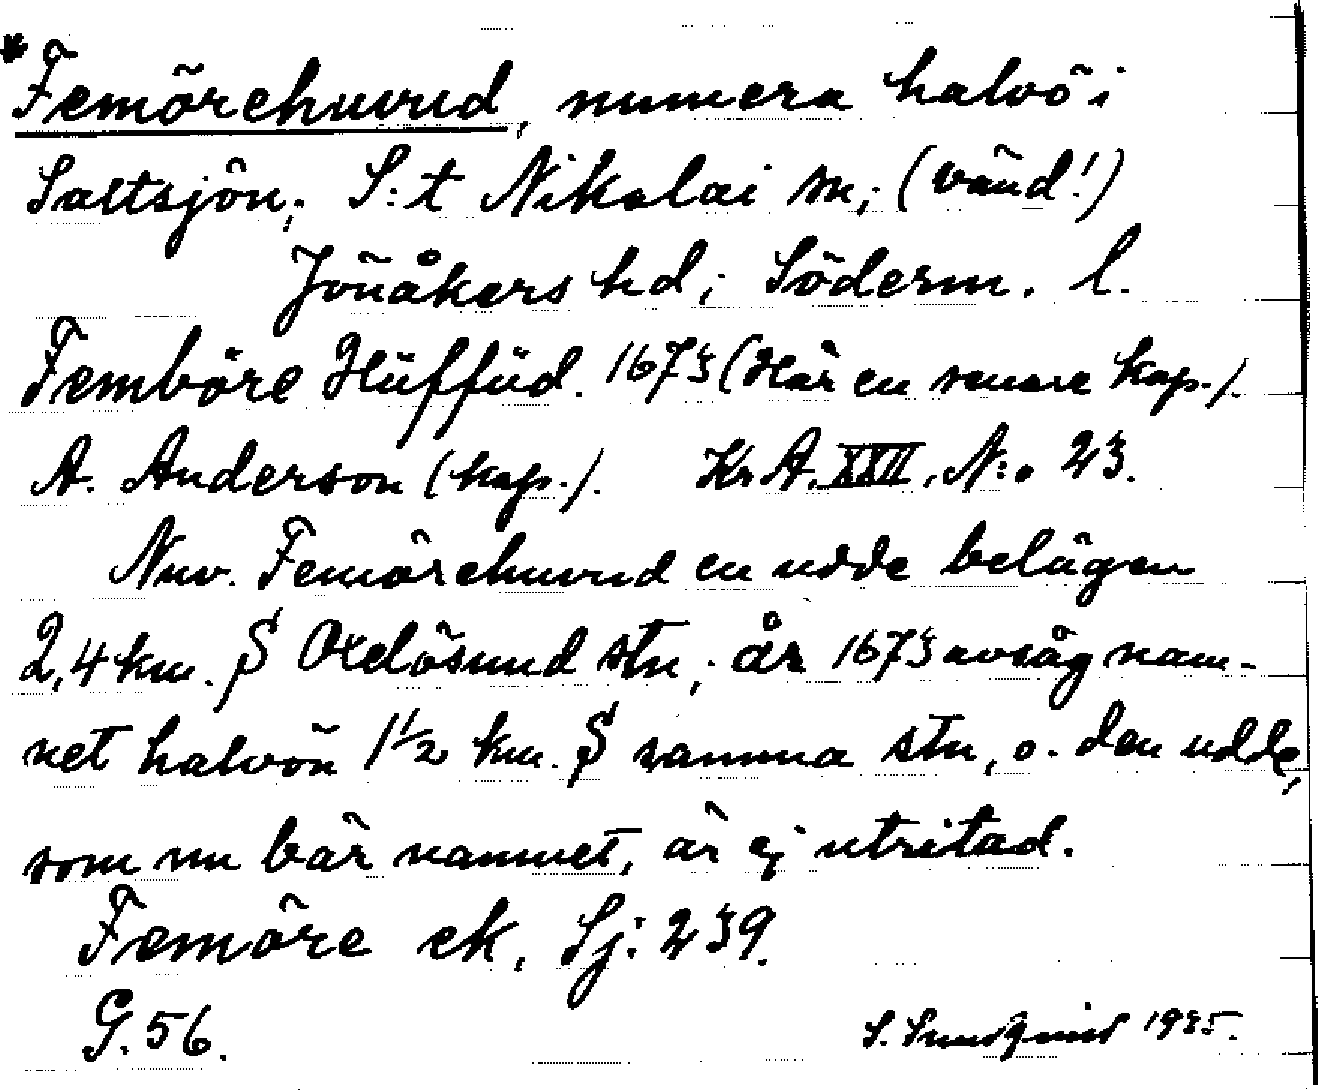 *Femörehuvud, numera halvö i
Saltsjön; S:t Nikolai sn; (vänd!)
Jönåkers hd; Söderm. l.
Femböre Hüffüd. 1673 (Här en senare kop.).
A. Anderson (kop.). Kr A. XXII. N:o 23.
Nuv. Femörehuvud en udde belägen
2,4 km. S Oxelösund stn; år 1673 avsåg nam-
net halvön 1 1/2 km. S samma stn, o. den udde,
som nu bär namnet, är ej utritad.
Femöre ek, Sj: 239.
G. 56.
S. Sundqvist 1935.